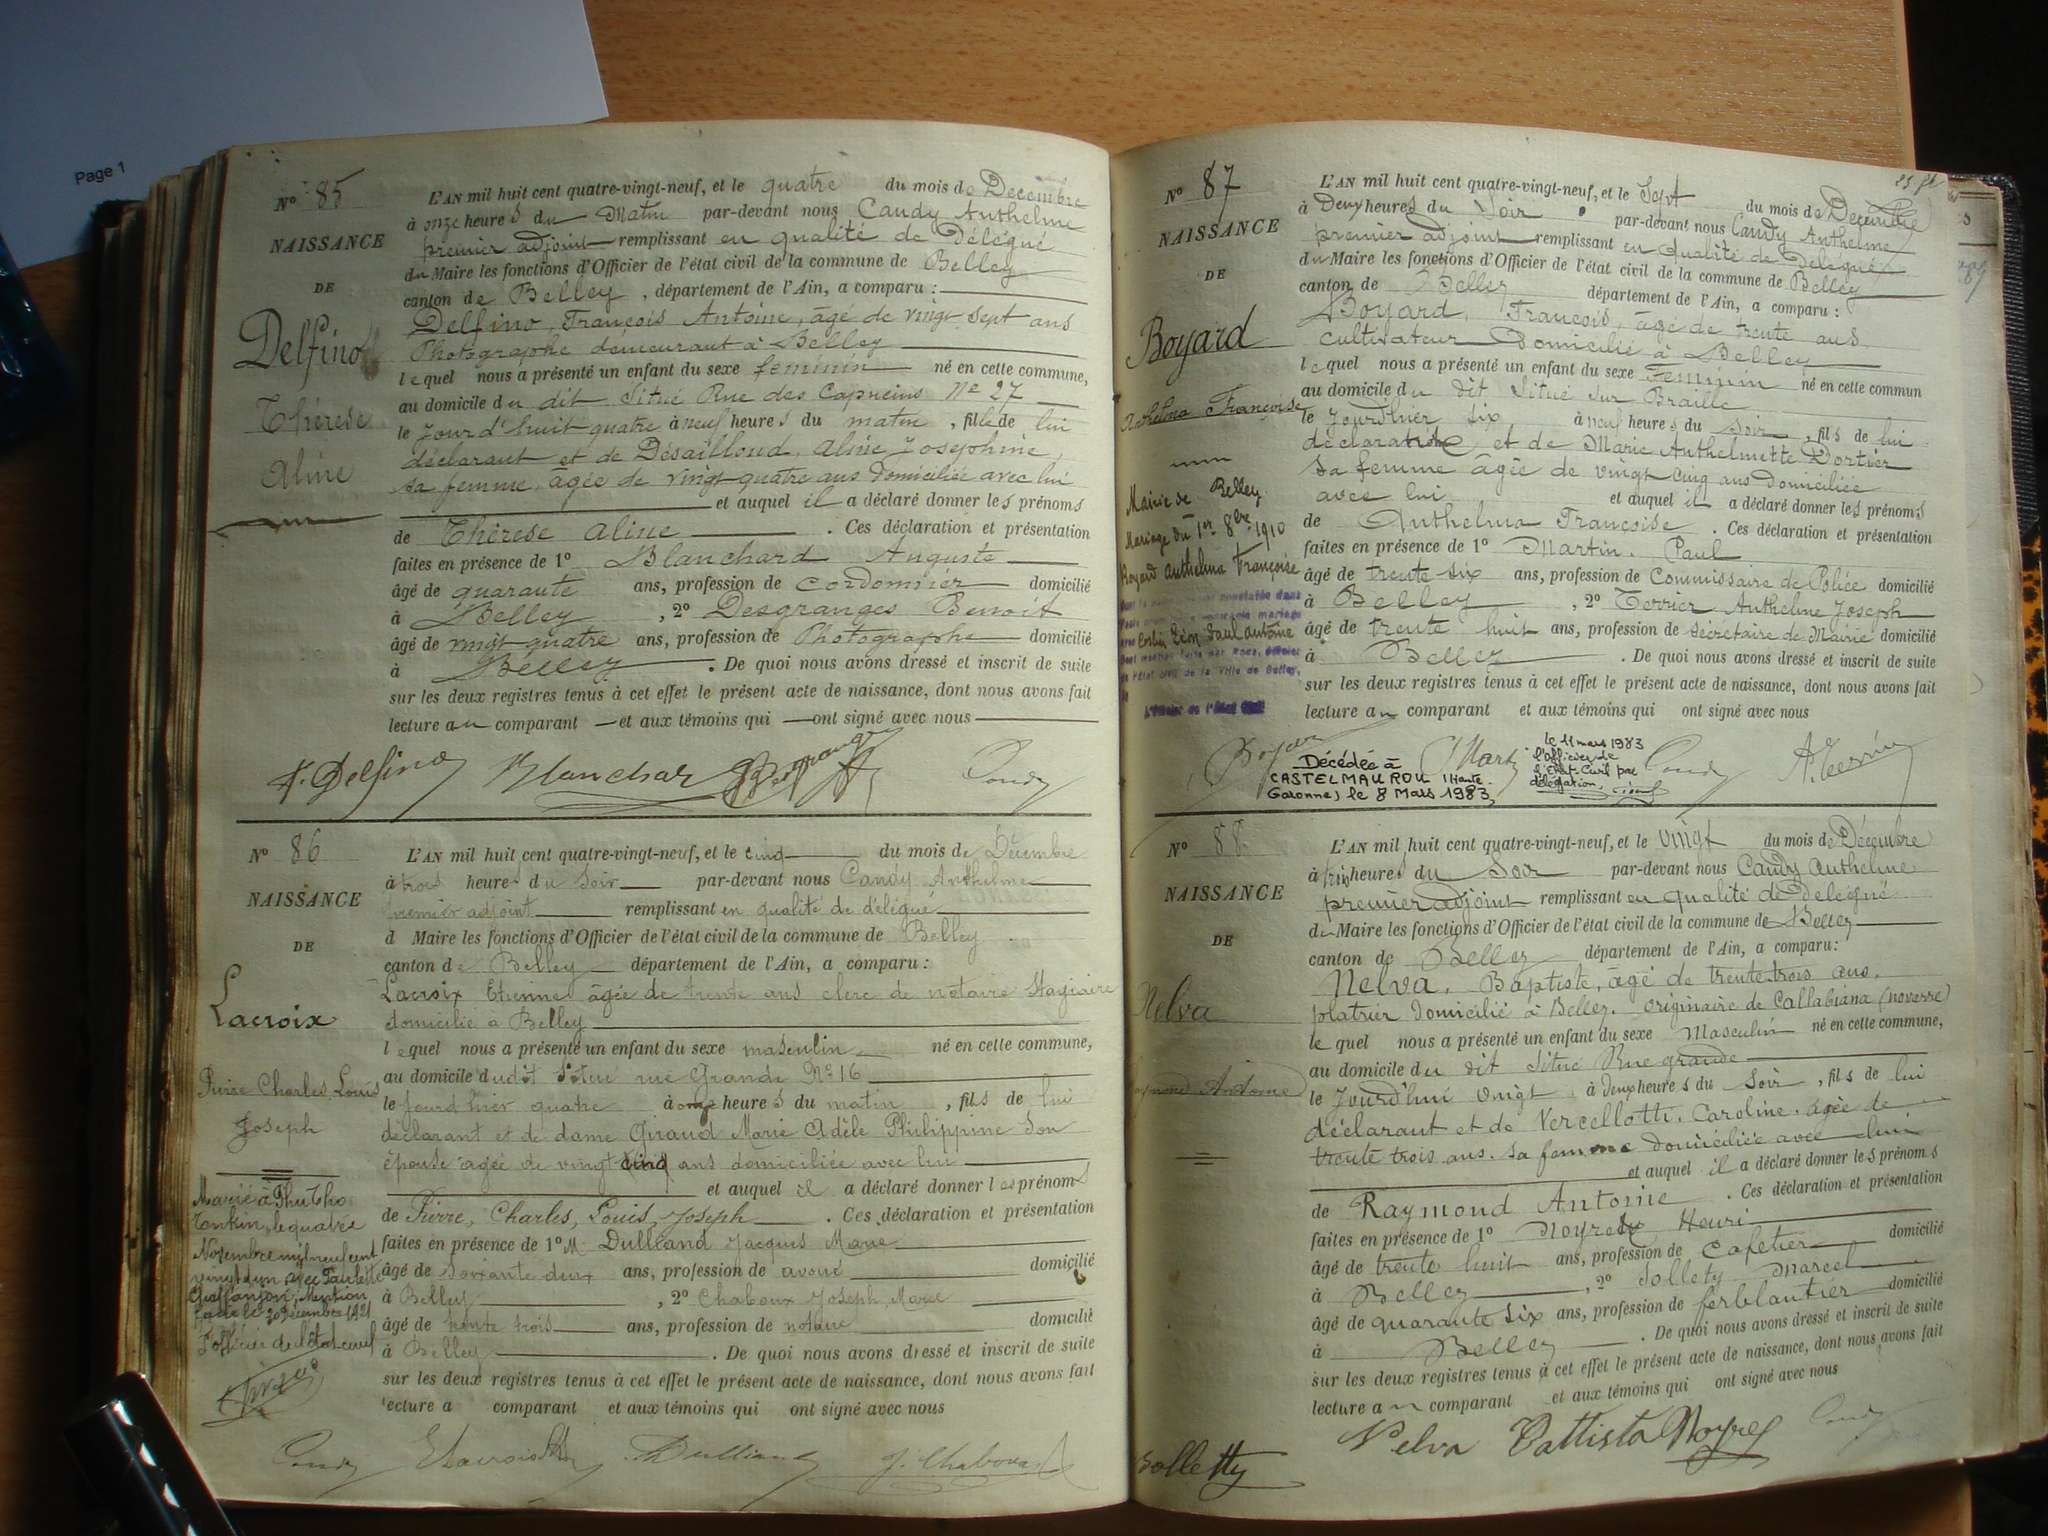 Page 1
N° 85
NAISSANCE
DE
Delfino
Thérèse
Aline
L'AN mil huit cent quatre-vingt-neuf, et le quatre du mois de Décembre
à onze heures du Matin par-devant nous Candy Anthelme
premier adjoint remplissant en qualité de Délégué
du Maire les fonctions d'Officier de l'état civil de la commune de Belley
canton de Belley, département de l'Ain, a comparu :
Delfino, François Antoine, âgé de vingt sept ans
Photographe demeurant à Belley
lequel nous a présenté un enfant du sexe féminin né en cette commune,
au domicile du dit Situé Rue des Capucins N° 27
le jourd'huit quatre à neuf heures du matin, fille de lui
déclarant et de Désailloud, Aline Josephine,
sa femme, âgée de vingt quatre ans domiciliée avec lui
et auquel il a déclaré donner les prénoms
de Thérèse Aline. Ces déclaration et présentation
faites en présence de 1° Blanchard Auguste
âgé de quarante ans, profession de cordonnier domicilié
à Belley, 2° Desgranges Benoit
âgé de vingt quatre ans, profession de Photographe domicilié
à Belley. De quoi nous avons dressé et inscrit de suite
sur les deux registres tenus à cet effet le présent acte de naissance, dont nous avons fait
lecture au comparant et aux témoins qui ont signé avec nous
F. Delfino Blanchard Desgranges Candy
N° 86
NAISSANCE
DE
Lacroix
Pierre Charles Louis
Joseph
Marié à Phu Tho
Tonkin, le quatre
Novembre mil neuf cent
vingt un avec Paulette
Mention
faite le 20 Décembre 1921
l'officier de l'état civil
L'AN mil huit cent quatre-vingt-neuf, et le cinq du mois de Décembre
à trois heures du soir par-devant nous Candy Anthelme
premier adjoint remplissant en qualité de délégué
d Maire les fonctions d'Officier de l'état civil de la commune de Belley
canton de Belley département de l'Ain, a comparu :
Lacroix Etienne âgée de trente ans clerc de notaire Stagiaire
domicilié à Belley
lequel nous a présenté un enfant du sexe masculin né en cette commune,
au domicile dudit Situé rue Grande N° 16
le jourd'hier quatre à onze heures du matin, fils de lui
déclarant et de dame Giraud Marie Adèle Philippine Son
épouse agée de vingt cinq ans domiciliée avec lui
et auquel il a déclaré donner les prénoms
de Pierre, Charles, Louis, Joseph. Ces déclaration et présentation
faites en présence de 1° M. Dulliand Jacques Marie
âgé de soixante deux ans, profession de avoué domicilié
à Belley, 2° Chaboux Joseph Marie
âgé de trente trois ans, profession de notaire domicilié
à Belley. De quoi nous avons dressé et inscrit de suite
sur les deux registres tenus à cet effet le présent acte de naissance, dont nous avons fait
lecture a comparant et aux témoins qui ont signé avec nous
Candy E Lacroix Dulliand J. Chaboux
25 ft
N° 87
NAISSANCE
DE
Boyard
Anthelma Françoise
Mairie de Belley
Mariage du 1er 8bre 1910
Boyard Anthelma Françoise
Léon Paul Antoine
de l'état civil de la Ville de Belley,
L'AN mil huit cent quatre-vingt-neuf, et le Sept du mois de Décembre
à Deux heures du Soir par-devant nous Candy Anthelme
premier adjoint remplissant en qualité de Délégué
du Maire les fonctions d'Officier de l'état civil de la commune de Belley
canton de Belley département de l'Ain, a comparu :
Boyard, François, âgé de trente ans
cultivateur Domicilié à Belley
lequel nous a présenté un enfant du sexe Féminin né en cette commun
au domicile du dit Situé sur Braille
le jourd'hier six à neuf heures du Soir, fils de lui
déclarant et de Marie Anthelmette Dortier
sa femme âgée de vingt cinq ans domiciliée
avec lui et auquel il a déclaré donner les prénoms
de Anthelma Françoise. Ces déclaration et présentation
faites en présence de 1° Martin. Paul
âgé de trente six ans, profession de Commissaire de Police domicilié
à Belley, 2° Terrier Anthelme Joseph
âgé de trente huit ans, profession de Secrétaire de Mairie domicilié
à Belley. De quoi nous avons dressé et inscrit de suite
sur les deux registres tenus à cet effet le présent acte de naissance, dont nous avons fait
lecture au comparant et aux témoins qui ont signé avec nous
Boyard P Martin Candy A. Terrier
Décédée à
CASTELMAUROU (Haute-
Garonne) le 8 Mars 1983
le 11 mars 1983
l'officier de
l'Etat-Civil par
délégation,
N° 88
NAISSANCE
DE
Nelva
Raymond Antoine
L'AN mil huit cent quatre-vingt-neuf, et le vingt du mois de Décembre
à trois heures du Soir par-devant nous Candy Anthelme
premier adjoint remplissant en qualité de Délégué
du Maire les fonctions d'Officier de l'état civil de la commune de Belley
canton de Belley département de l'Ain, a comparu :
Nelva, Baptiste, âgé de trente trois ans.
platrier domicilié à Belley. originaire de Callabiana (noverre)
le quel nous a présenté un enfant du sexe Masculin né en cette commune,
au domicile du dit Situé Rue grande
le jourd'hui vingt à deux heures du Soir, fils de lui
déclarant et de Vercellotti. Caroline. agée de
trente trois ans. sa femme domiciliée avec lui
et auquel il a déclaré donner les prénoms
de Raymond Antoine. Ces déclaration et présentation
faites en présence de 1° Noyret Henri
âgé de trente huit ans, profession de Cafetier domicilié
à Belley, 2° Sollety Marcel
âgé de quarante six ans, profession de ferblantier domicilié
à Belley. De quoi nous avons dressé et inscrit de suite
sur les deux registres tenus à cet effet le présent acte de naissance, dont nous avons fait
lecture au comparant et aux témoins qui ont signé avec nous
Solletty Nelva Battista Noyret Candy